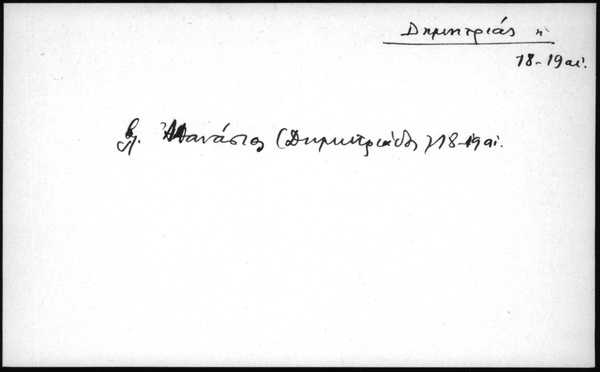 Δημητριάς η
18-19 αι.
βλ. Αθανάσιος (Δημητριάδος) 18-19 αι.